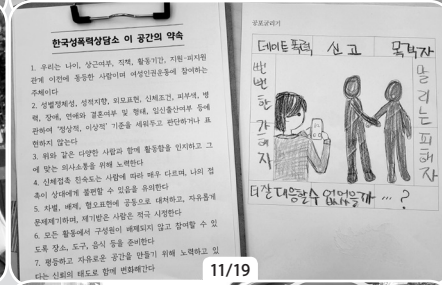 한국성폭력상담소 이 공간의 약속
1. 우리는 나이, 상근여부, 직책, 활동기간, 지원-피지원
관계 이전에 동등한 사람이며 여성인권운동에 참여하는
주체이다
2. 성별정체성, 성적지향, 외모표현, 신체조건, 피부색, 병
력, 장애, 연애와 결혼여부 및 형태, 임신출산여부 등에
관하여 '정상적, 이상적' 기준을 세워두고 판단하거나 표
현하지 않는다
3. 위와 같은 다양한 사람과 함께 활동함을 인지하고 그
에 맞는 의사소통을 위해 노력한다
4. 신체접촉 친숙도는 사람에 따라 매우 다르며, 나의 접
촉이 상대에게 불편할 수 있음을 유의한다
5. 차별, 배제, 혐오표현에 공동으로 대처하고, 자유롭게
문제제기하며, 제기받은 사람은 적극 시정한다
6. 모든 활동에서 구성원이 배제되지 않고 참여할 수 있
도록 장소, 도구, 음식 등을 준비한다
7. 평등하고 자유로운 공간을 만들기 위해 노력하고 있
다는 신뢰의 태도로 함께 변화해간다
공포글리기
데이트폭력 신고 목격자
뻔뻔한 가해자
말리는 피해자
더 잘 대응할 수 없었을까 … ?
11/19